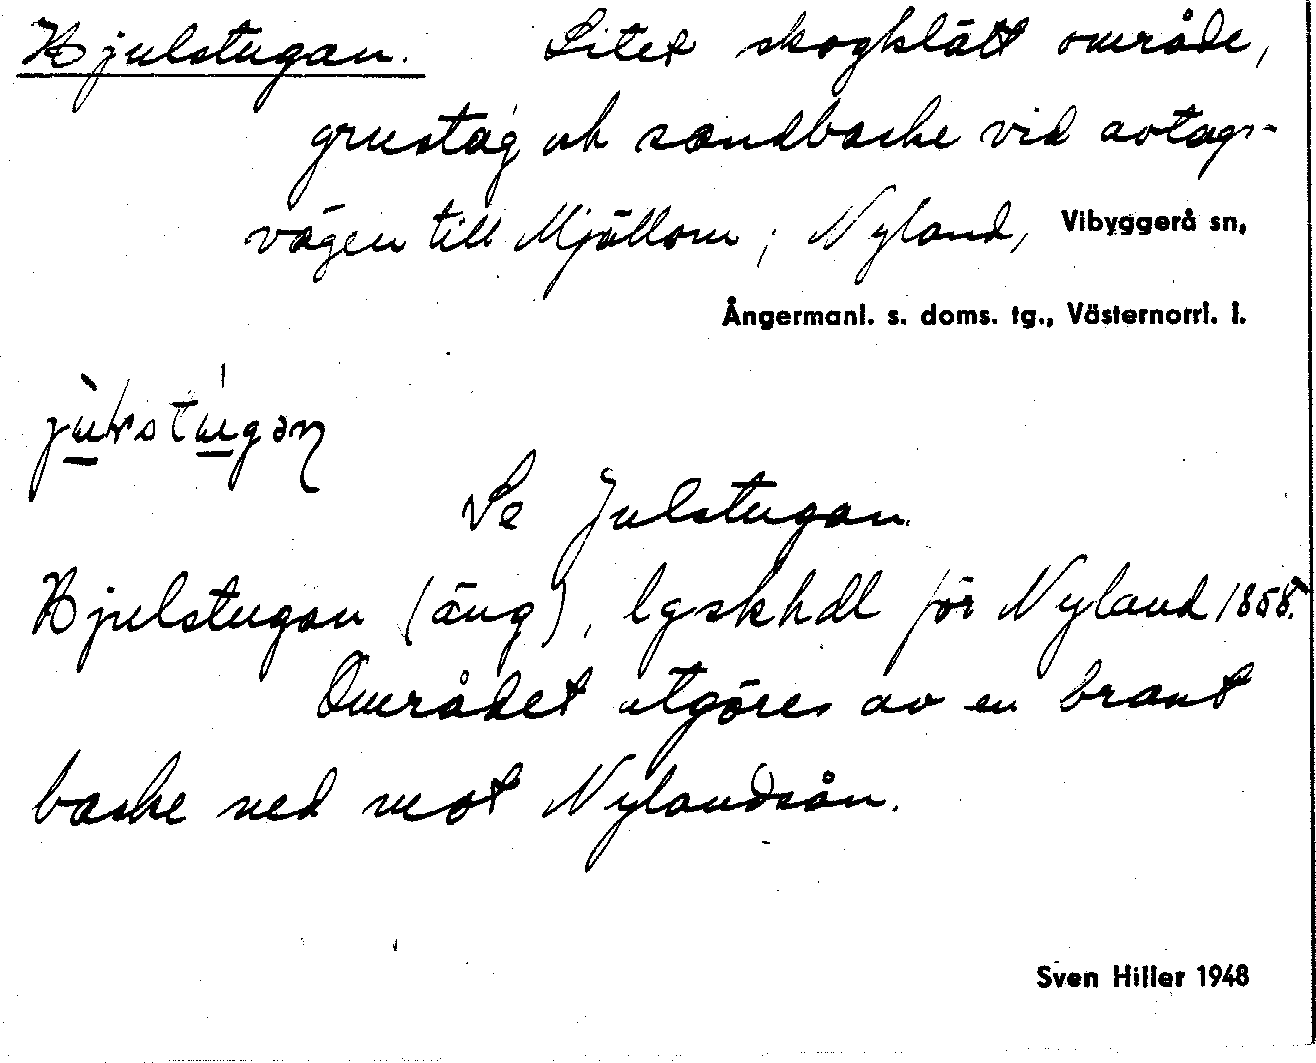 Hjulstugan. Litet skogklätt område,
grustag och sandbacke vid avtags-
vägen till Mjällom; Nyland, Vibyggerå sn,
Ångermanl. s. doms. tg., Västernorrl. l.
Se Julstugan.
Hjulstugan (äng), lgskhdl för Nyland 1858.
Området utgöres av en brant
backe ned mot Nylandsån.
Sven Hiller 1948